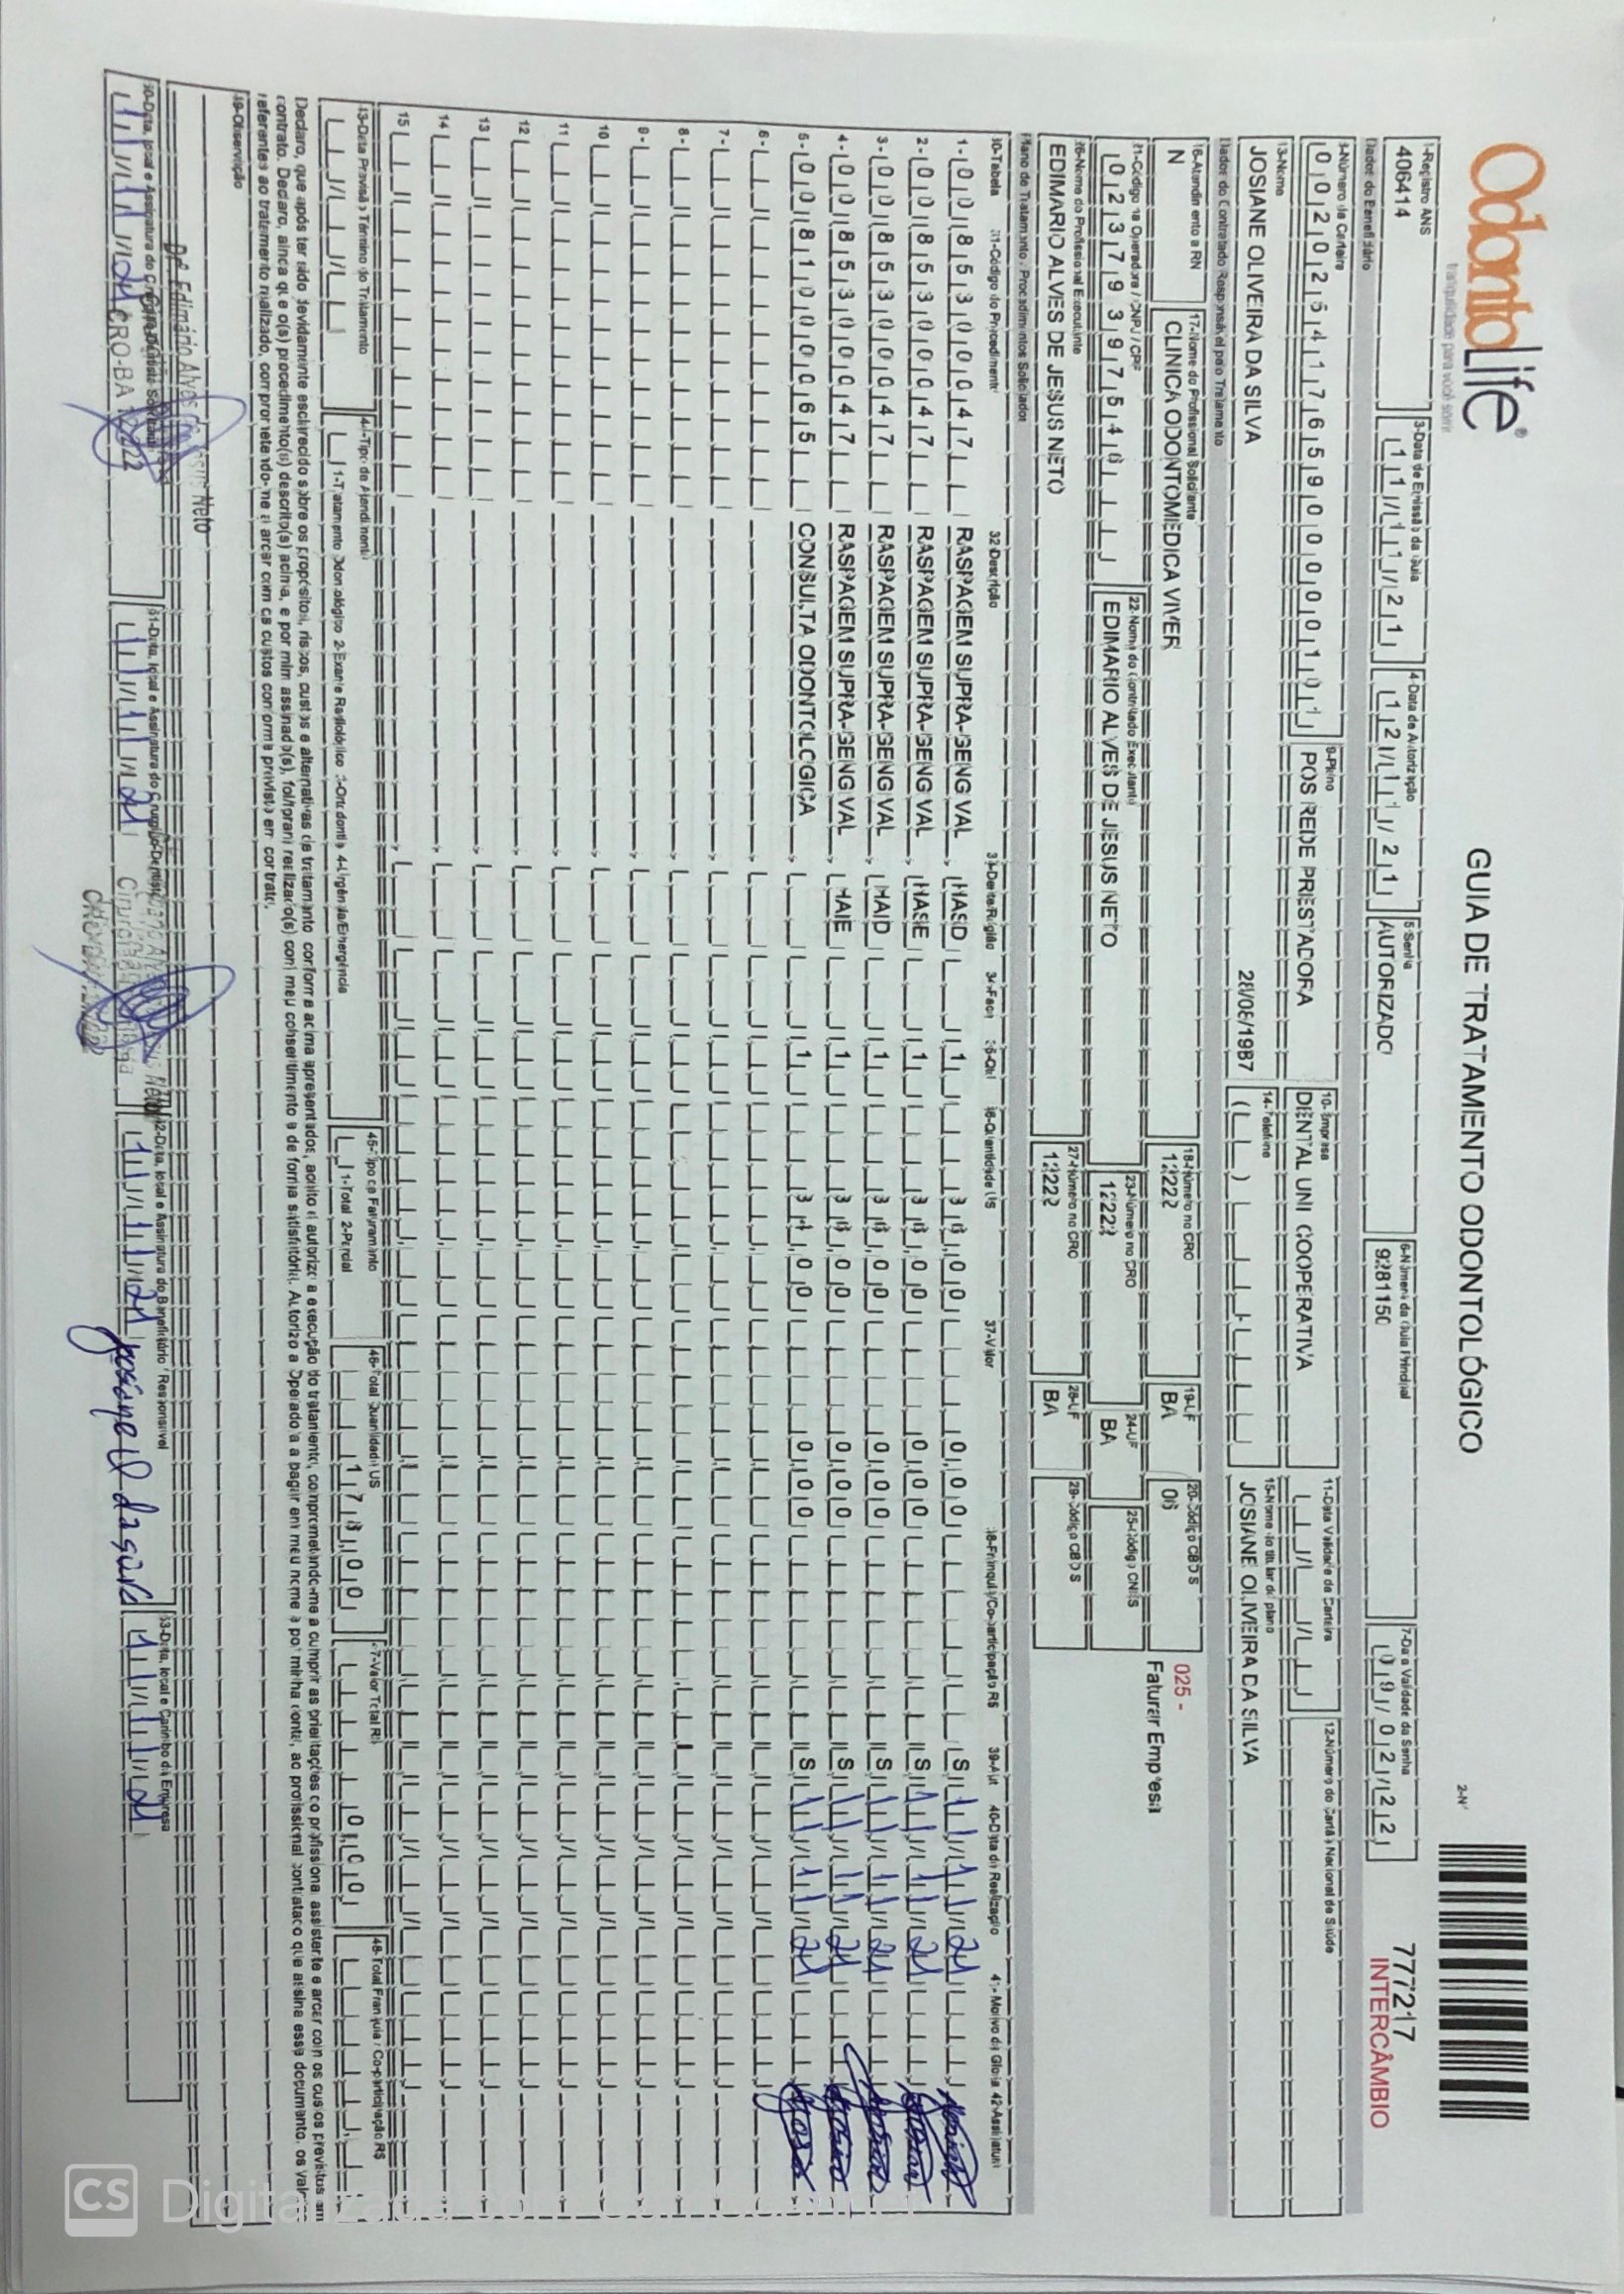 OdontoLife®
tranquilidade para você sorrir
GUIA DE TRATAMENTO ODONTOLÓGICO
2-Nº
777217
INTERCÂMBIO
1-Registro ANS
406414
3-Data de Emissão da Guia
11/11/21
4-Data de Autorização
12/11/21
5-Senha
AUTORIZADO
6-Número da Guia Principal
9281150
7-Data Validade da Senha
09/02/22
Dados do Beneficiário
8-Número da Carteira
00202541765900000101
9-Plano
POS REDE PRESTADORA
10-Empresa
DENTAL UNI COOPERATIVA
11-Data Validade da Carteira
12-Número do Cartão Nacional de Saúde
13-Nome
JOSIANE OLIVEIRA DA SILVA
28/08/1987
14-Telefone
15-Nome do titular do plano
JOSIANE OLIVEIRA DA SILVA
Dados do Contratado Responsável pelo Tratamento
16-Atendimento a RN
N
17-Nome do Profissional Solicitante
CLINICA ODONTOMEDICA VIVER
18-Número no CRO
12222
19-UF
BA
20-Código CBO S
06
025 -
Faturar Empresa
21-Código na Operadora / CNPJ / CPF
02379397546
22-Nome do Contratado Executante
EDIMARIO ALVES DE JESUS NETO
23-Número no CRO
12222
24-UF
BA
25-Código CNES
26-Nome do Profissional Executante
EDIMARIO ALVES DE JESUS NETO
27-Número no CRO
12222
28-UF
BA
29-Código CBO S
Plano de Tratamento / Procedimentos Solicitados
30-Tabela 31-Código do Procedimento 32-Descrição 33-Dente/Região 34-Face 35-Qtd 36-Quantidade US 37-Valor 38-Franquia/Co-participação R$ 39-Aut 40-Data de Realização 41-Motivo da Glosa 42-Assinatura
1- 00 85300047 RASPAGEM SUPRA-GENGIVAL HASD 1 36,00 0,00 S 11/11/21
2- 00 85300047 RASPAGEM SUPRA-GENGIVAL HASE 1 36,00 0,00 S 11/11/21
3- 00 85300047 RASPAGEM SUPRA-GENGIVAL HAID 1 36,00 0,00 S 11/11/21
4- 00 85300047 RASPAGEM SUPRA-GENGIVAL HAIE 1 36,00 0,00 S 11/11/21
5- 00 81000065 CONSULTA ODONTOLOGICA 1 34,00 0,00 S 11/11/21
6-
7-
8-
9-
10
11
12
13
14
15
43-Data Previsão Término do Tratamento
44-Tipo de Atendimento
1-Tratamento Odontológico 2-Exame Radiológico 3-Ortodontia 4-Urgência/Emergência
45-Tipo de Faturamento
1-Total 2-Parcial
46-Total Quantidade US
178,00
47-Valor Total R$
0,00
48-Total Franquia / Co-participação R$
Declaro, que após ter sido devidamente esclarecido sobre os propósitos, riscos, custos e alternativas de tratamento, conforme acima apresentados, aceito e autorizo a execução do tratamento, comprometendo-me a cumprir as orientações do profissional assistente e arcar com os custos previstos em
contrato. Declaro, ainda que o(s) procedimento(s) descrito(s) acima, e por mim assinado(s), foi/foram realizado(s) com meu consentimento e de forma satisfatória. Autorizo a Operadora a pagar em meu nome e por minha conta, ao profissional contratado que assina esse documento, os valores
referentes ao tratamento realizado, comprometendo-me a arcar com os custos conforme previsto em contrato.
49-Observação
50-Data, local e Assinatura do Cirurgião-Dentista Solicitante
11/11/21
Dr. Edimário Alves de Jesus Neto
Cirurgião-Dentista
CRO-BA 12222
51-Data, local e Assinatura do Cirurgião-Dentista
11/11/21
52-Data, local e Assinatura do Beneficiário / Responsável
11/11/21
53-Data, local e Carimbo da Empresa
11/11/21
CS Digitalizado com CamScanner